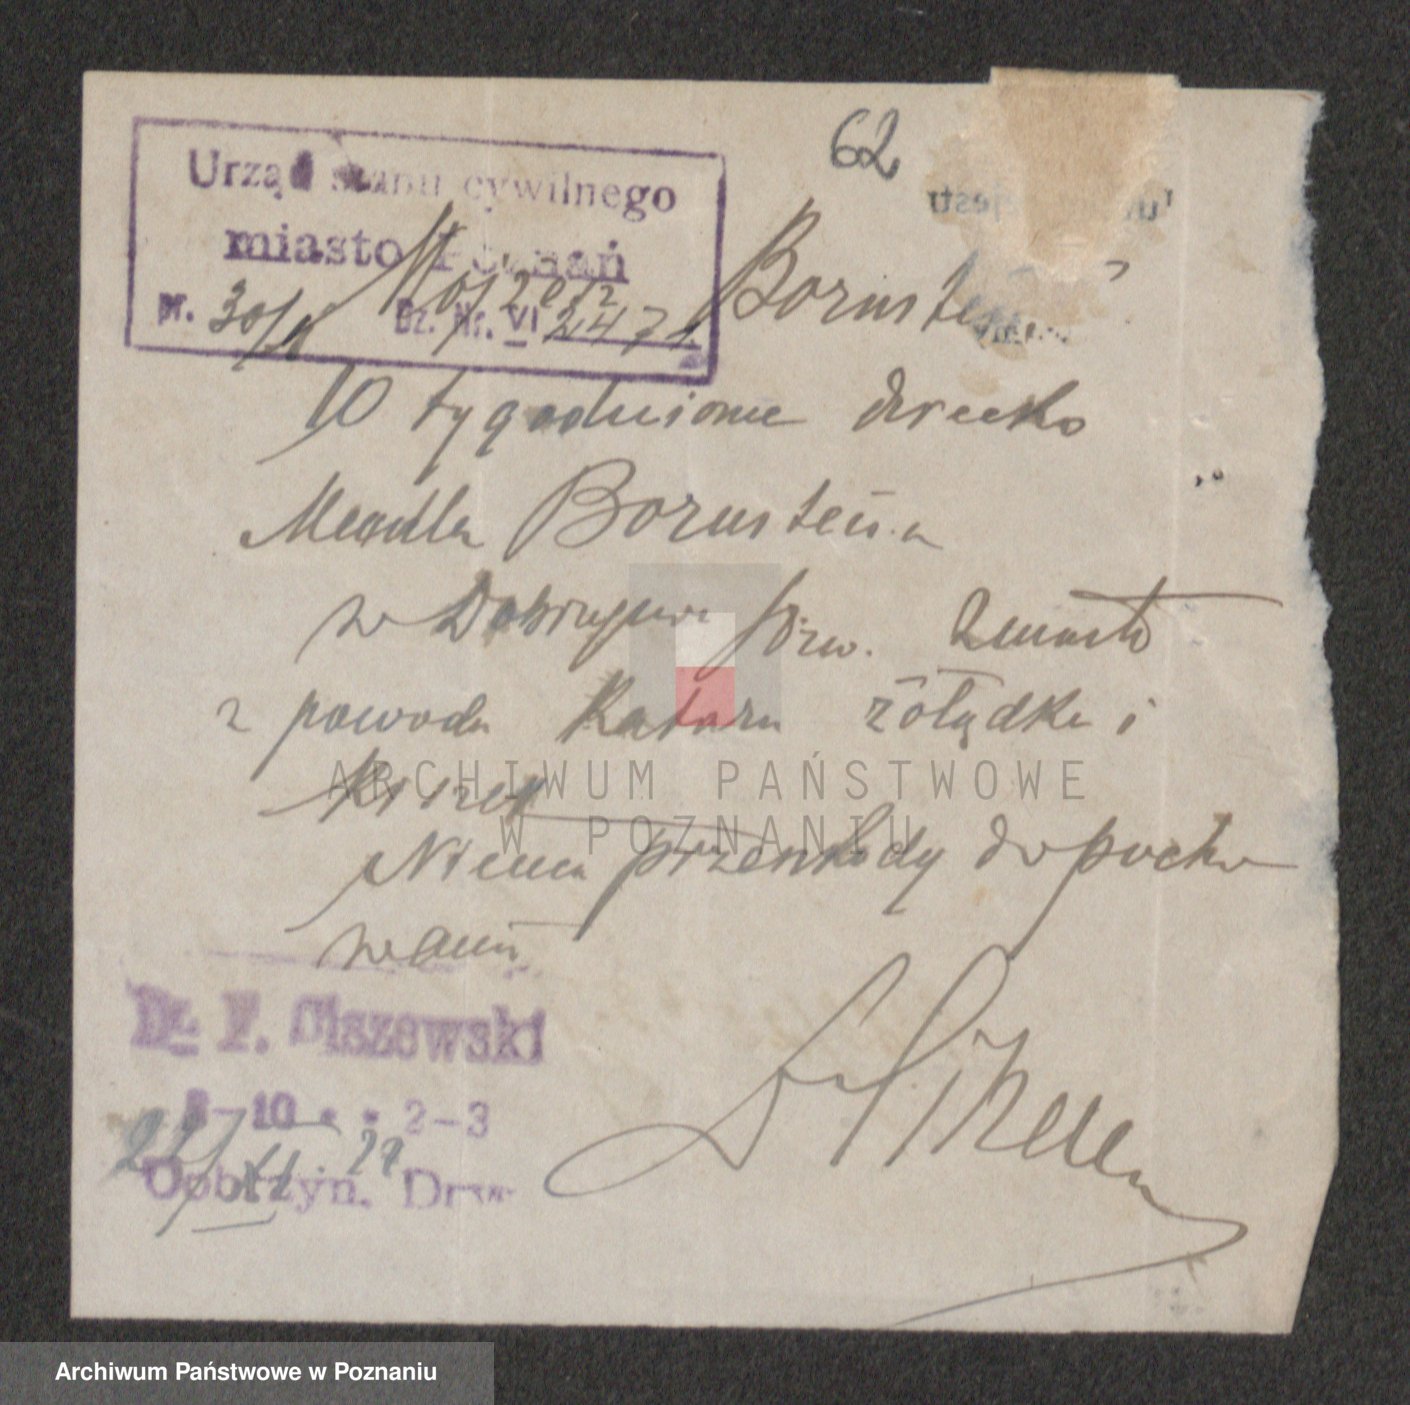 62
Urząd stanu cywilnego
miasto Poznań
pr. 30/ Dz. Nr. VI 2471
Bornstein
10 tygodniowe dziecko
Mendla Bornsteina
w Dobrzyniu Drw. zmarło
z powodu Kataru żołądka i
kiszek
Niema przeszkody do pocho
wania
Dr. F. Olszewski
8-10 2-3
22/
Dobrzyn. Drw.
ARCHIWUM PAŃSTWOWE
W POZNANIU
Archiwum Państwowe w Poznaniu